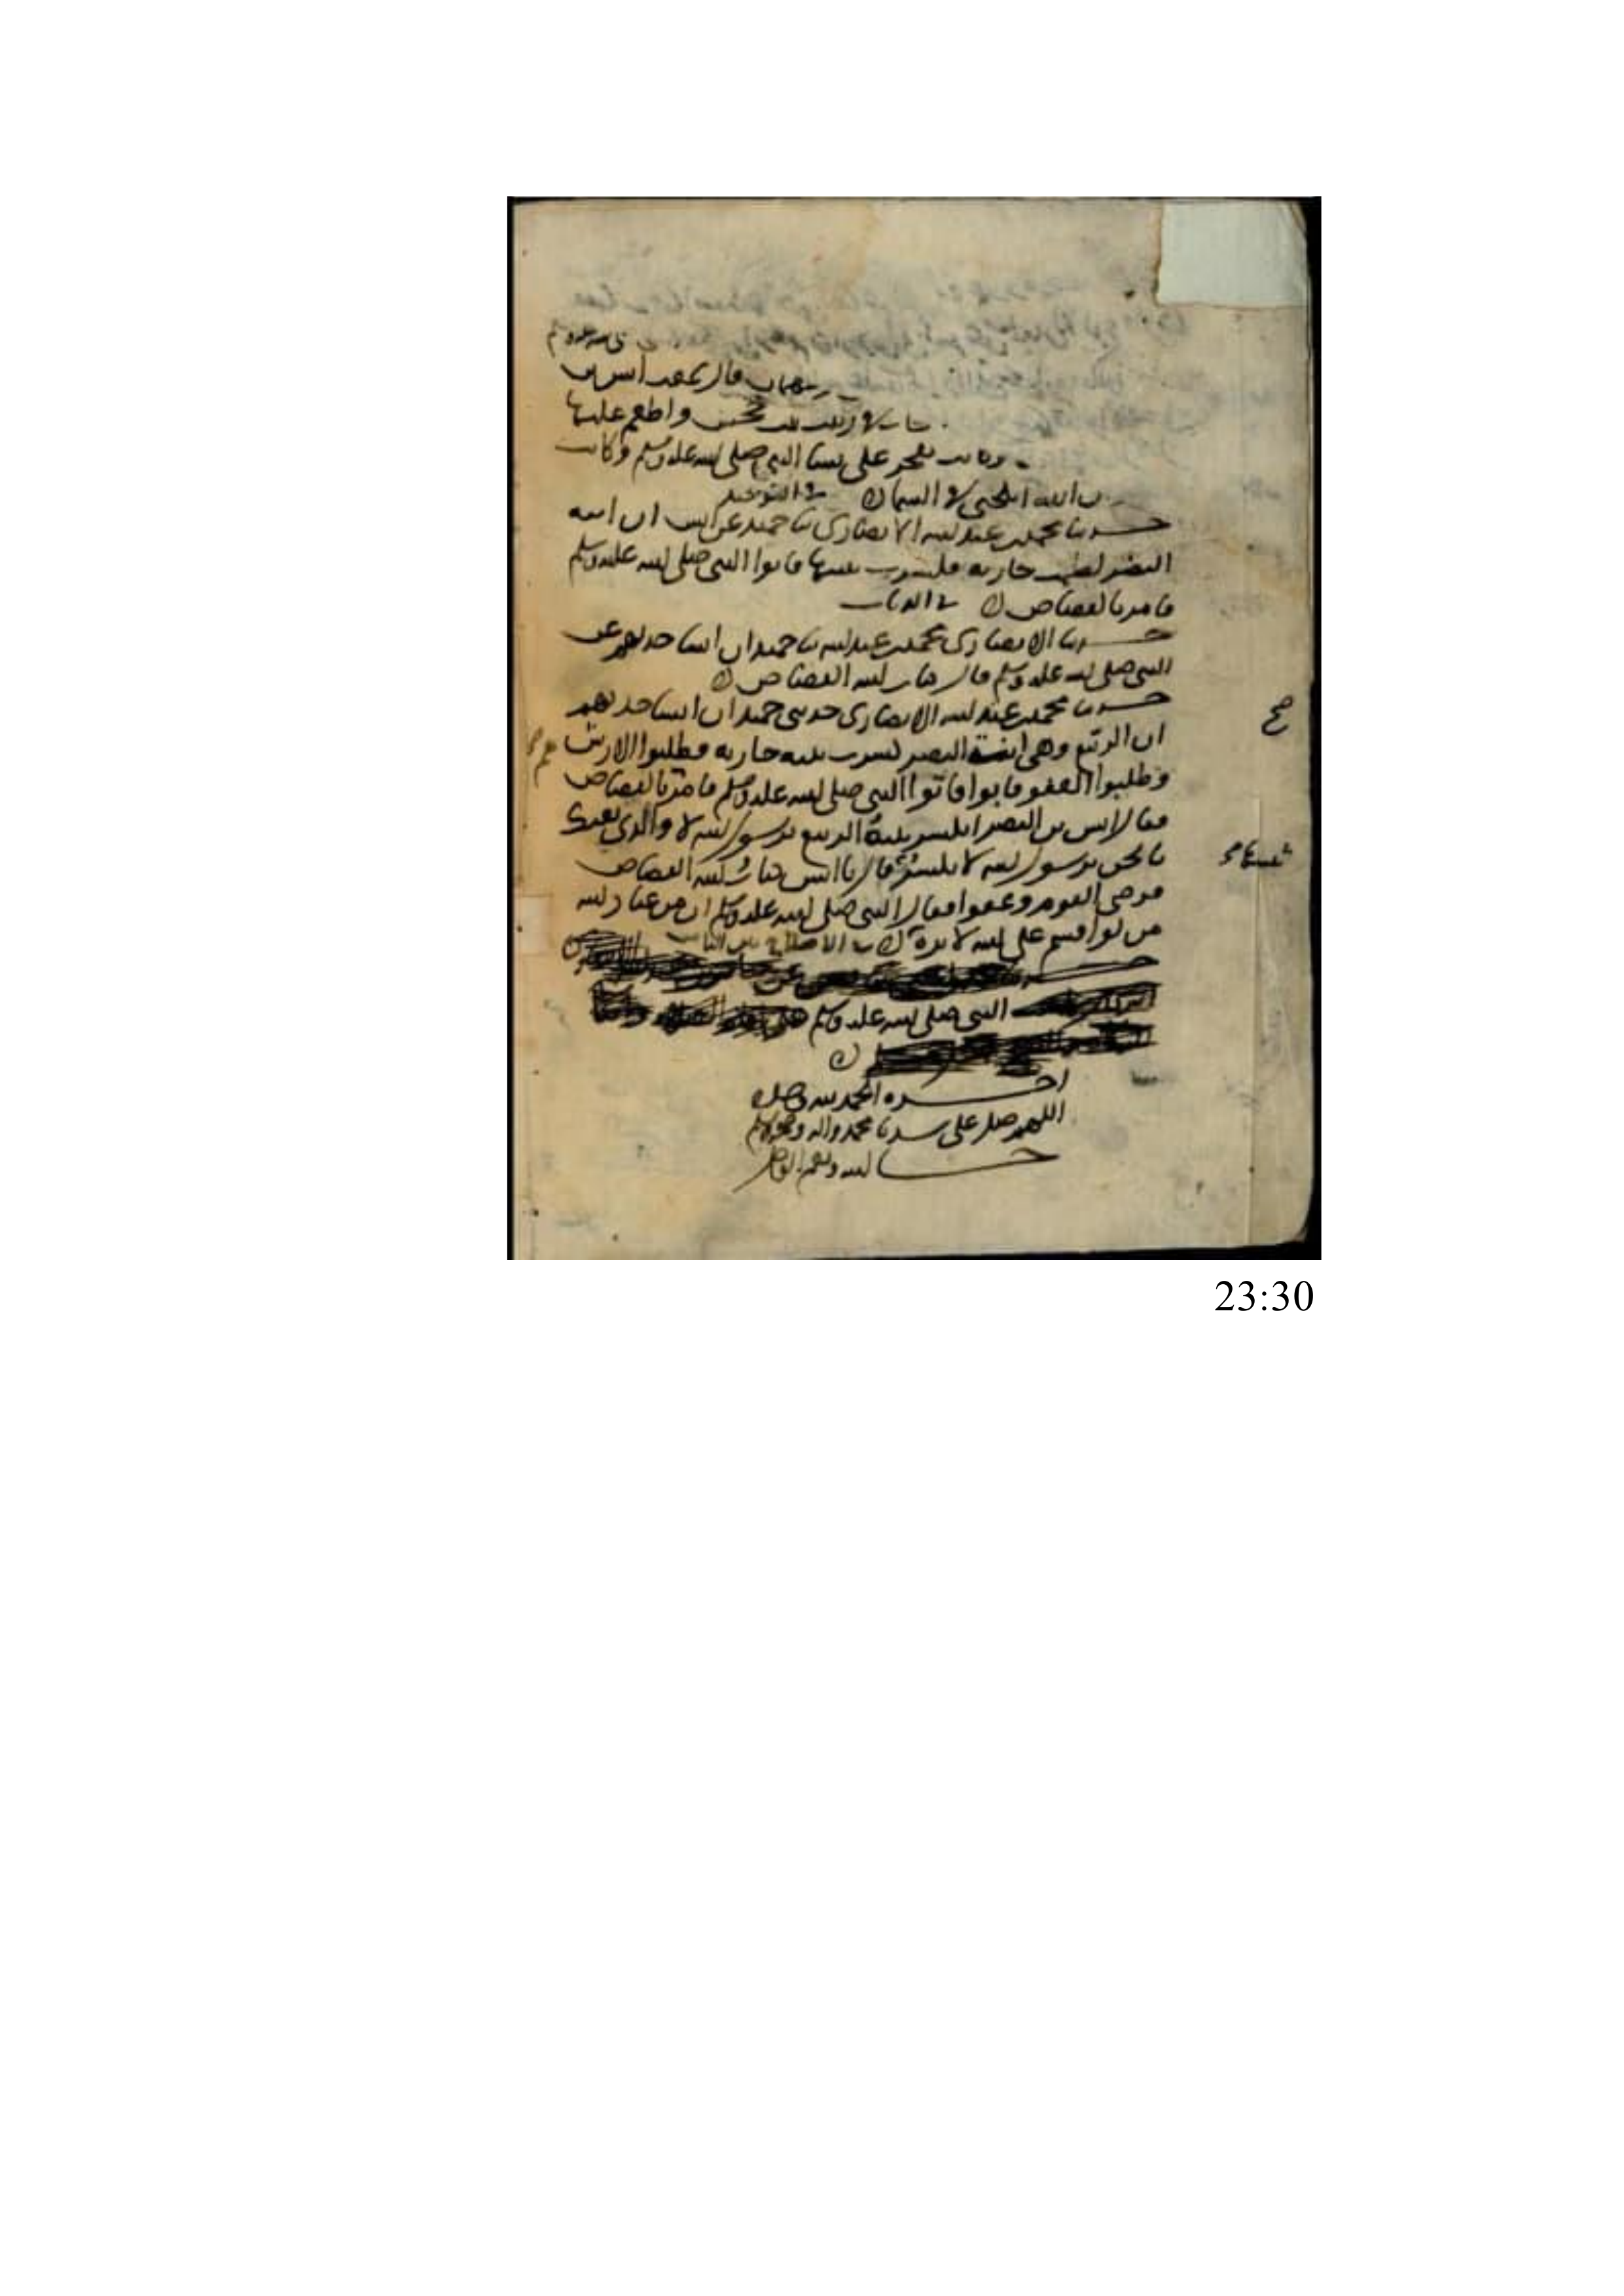 صلى الله عليه وسلم
بن طهمان قال سمعت انس بن
في زينب بنت جحش واطعم عليها
وكانت تفخر على نسا النبي صلى الله عليه وسلم وكانت
ان الله انكحني في السما في التوحيد
حدثنا محمد بن عبد الله الانصاري نا حميد عن انس ان ابنة
النضر لطمت جارية فكسرت ثنيتها فاتوا النبي صلى الله عليه وسلم
فامر بالقصاص في الديات
حدثنا الانصاري محمد بن عبد الله نا حميد ان انسا حدثهم عن
النبي صلى الله عليه وسلم قال كتاب الله القصاص
حدثنا محمد بن عبد الله الانصاري حدثني حميد ان انسا حدثهم
صح
ان الربيع وهي ابنة النضر كسرت ثنية جارية فطلبوا الارش
وطلبوا العفو فابوا فاتوا النبي صلى الله عليه وسلم فامر بالقصاص
فقال انس بن النضر اتكسر ثنية الربيع يرسول الله لا والذي بعثك
بالحق يرسول الله لا تكسر فقال يا انس كتاب الله القصاص
فرضي القوم وعفوا فقال النبي صلى الله عليه وسلم ان من عباد الله
من لو اقسم على الله لابره في الاصلاح بين الناس
النبي صلى الله عليه وسلم
اخره الحمد لله وصلى
اللهم صل على سيدنا محمد واله وصحبه وسلم
حسبنا الله ونعم الوكيل
23:30